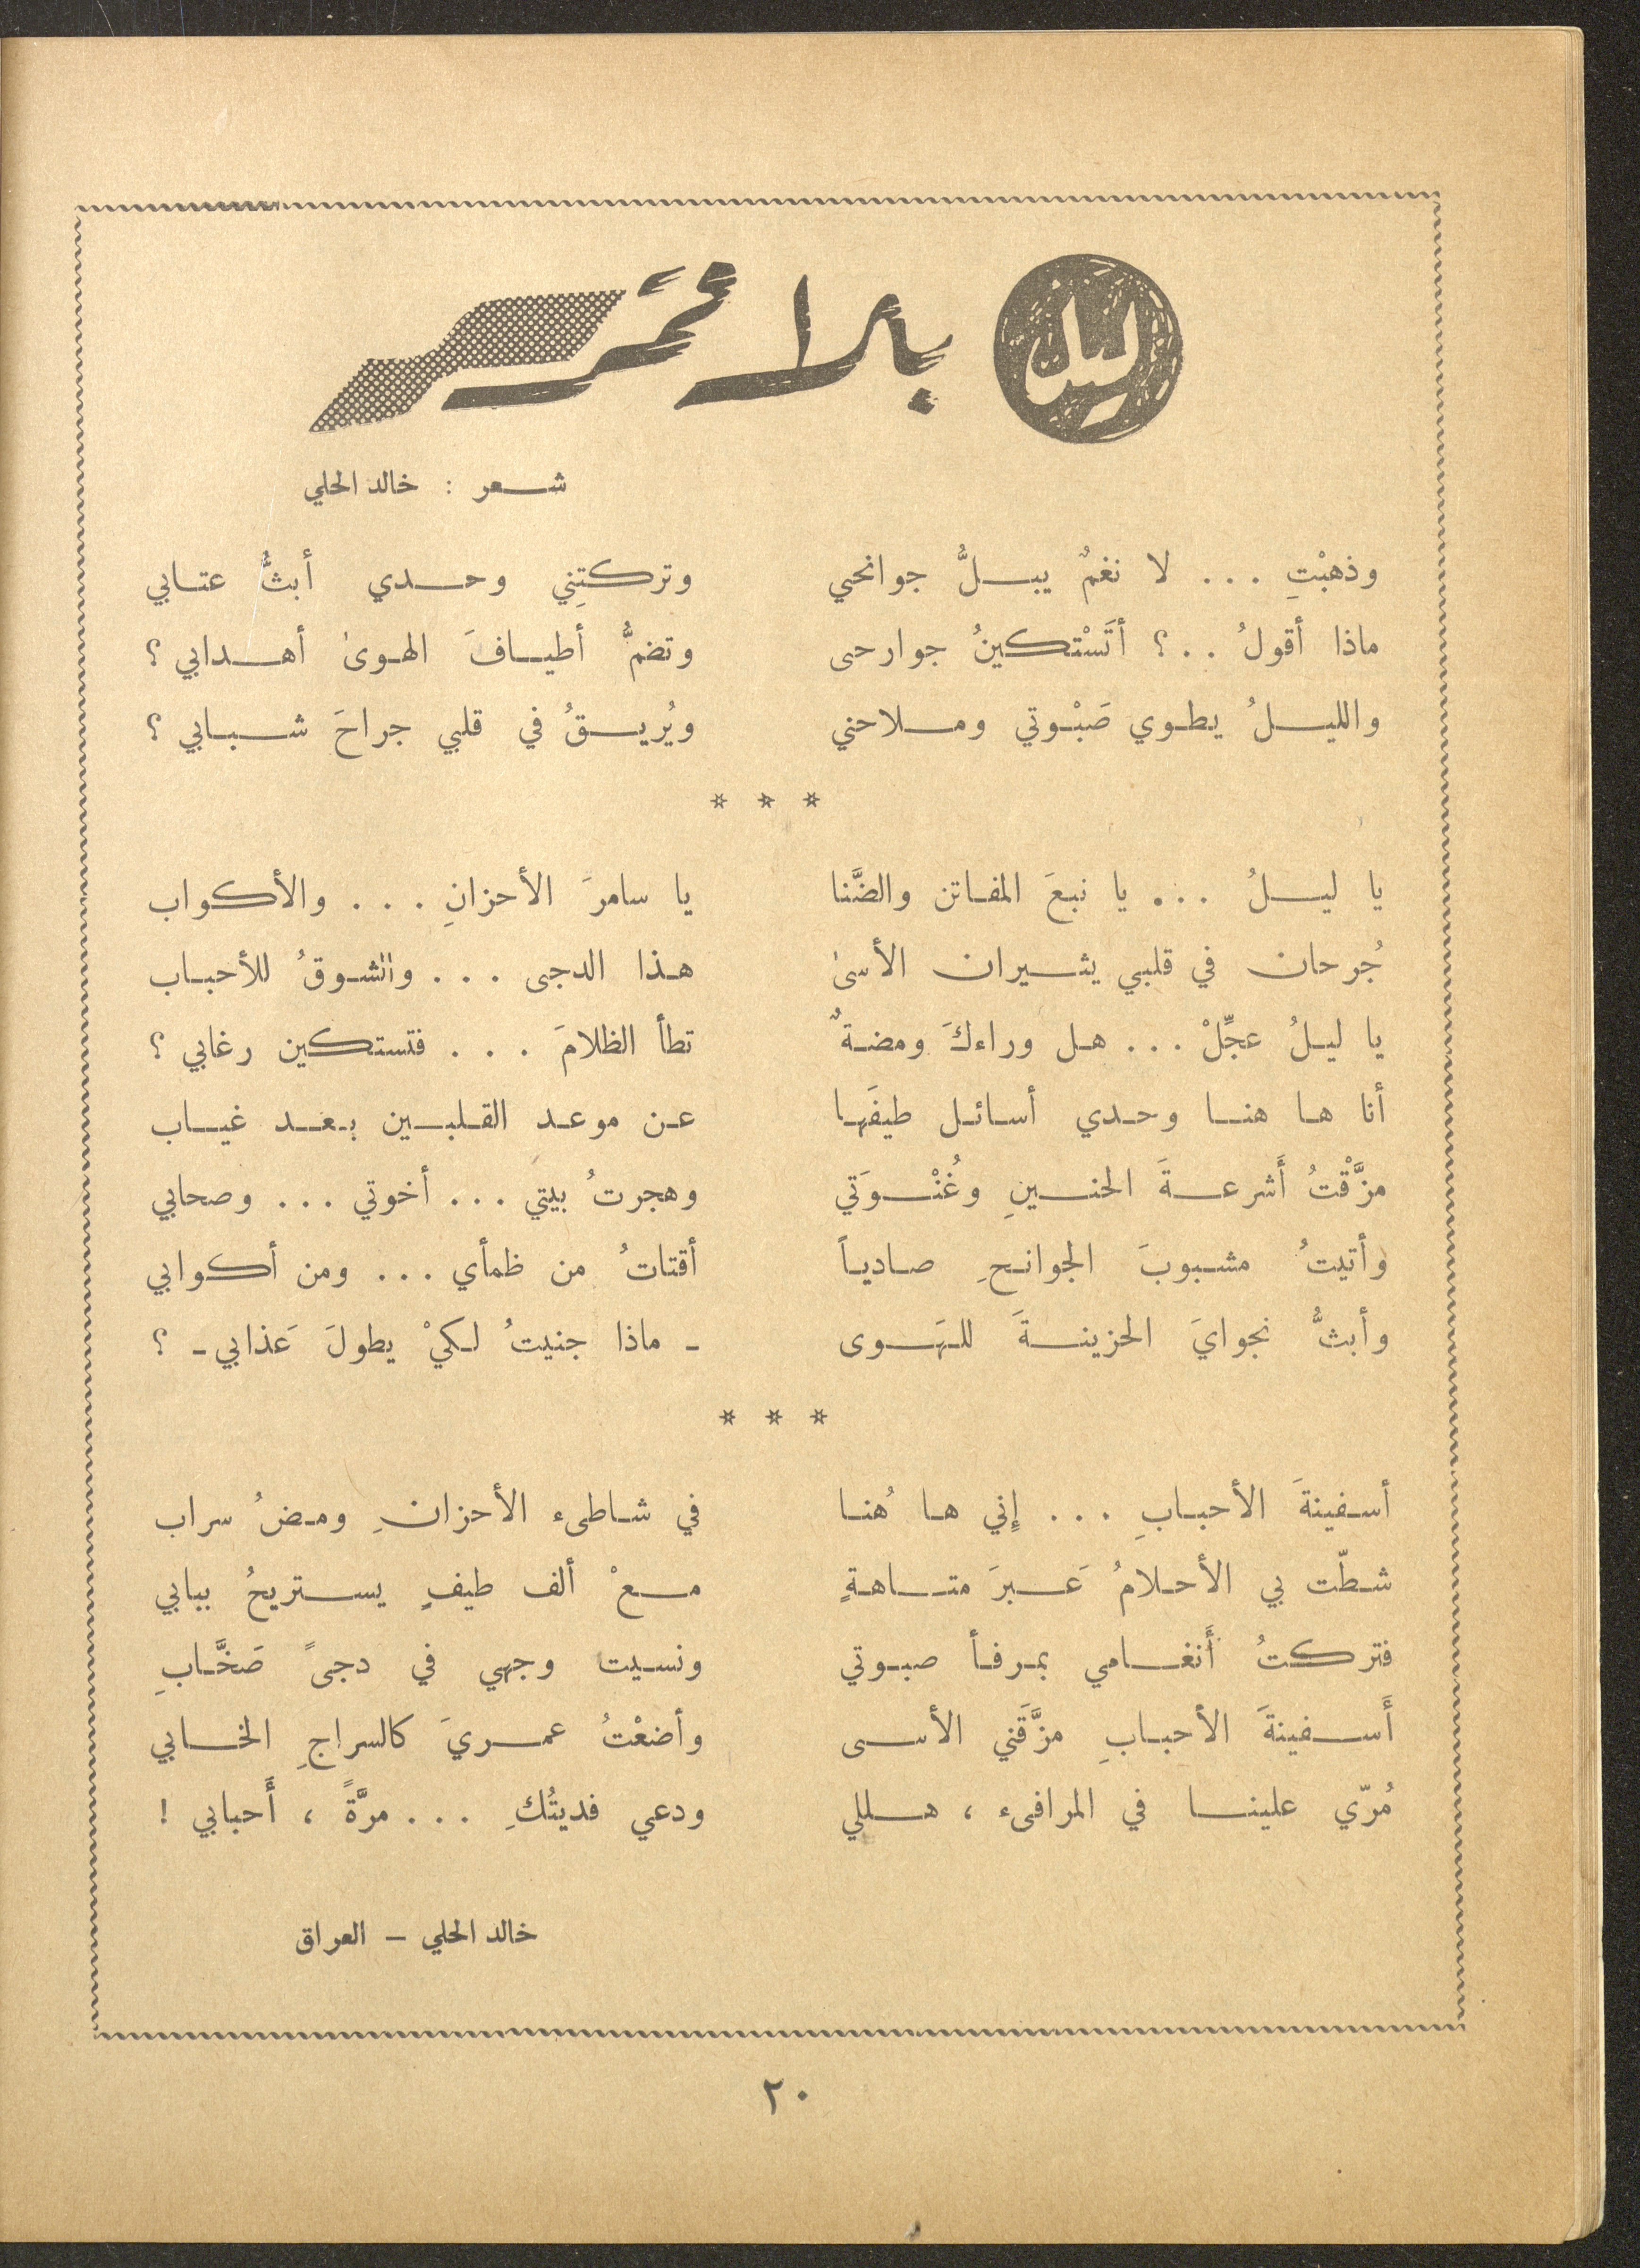 ليل بلا قمر
شعر : خالد الحلي
وذهبْتِ ... لا نغمٌ يبلُّ جوانحي وتركتِني وحدي أبثُّ عتابي
ماذا أقولُ ..؟ أتَسْتكينُ جوارحى وتضمُّ أطيافَ الهوىٰ أهدابي ؟
والليلُ يطوي صَبْوتي وملاحني ويُريقُ في قلبي جراحَ شبابي ؟
* * *
يا ليلُ ... يا نبعَ المفاتن والضَّنا يا سامرَ الأحزانِ ... والأكواب
جُرحان في قلبي يثيران الأسىٰ هذا الدجى ... والشوقُ للأحباب
يا ليلُ عجِّلْ ... هل وراءكَ ومضةٌ تطأ الظلامَ ... فتستكين رغابي ؟
أنا ها هنا وحدي أسائل طيفَها عن موعد القلبين بعد غياب
مزَّقْتُ أَشرعةَ الحنينِ وغُنْوَتي وهجرتُ بيتي ... أخوتي ... وصحابي
وأتيتُ مشبوبَ الجوانحِ صادياً أقتاتُ من ظمأي ... ومن أكوابي
وأبثُّ نجوايَ الحزينةَ للهَوى - ماذا جنيتُ لكيْ يطولَ عَذابي - ؟
* * *
أسفينةَ الأحبابِ ... إِني ها هُنا في شاطىء الأحزانِ ومضُ سراب
شطّت بي الأحلامُ عَبرَ متاهةٍ معْ ألف طيفٍ يستريحُ ببابي
فتركتُ أَنغامي بمرفأ صبوتي ونسيت وجهي في دجىً صَخَّابِ
أَسفينةَ الأحبابِ مزَّقَني الأسى وأضعْتُ عمريَ كالسراجِ الخابي
مُرّي علينا في المرافىء ، هللي ودعي فديتُكِ ... مرَّةً ، أَحبابي !
خالد الحلي – العراق
٢٠